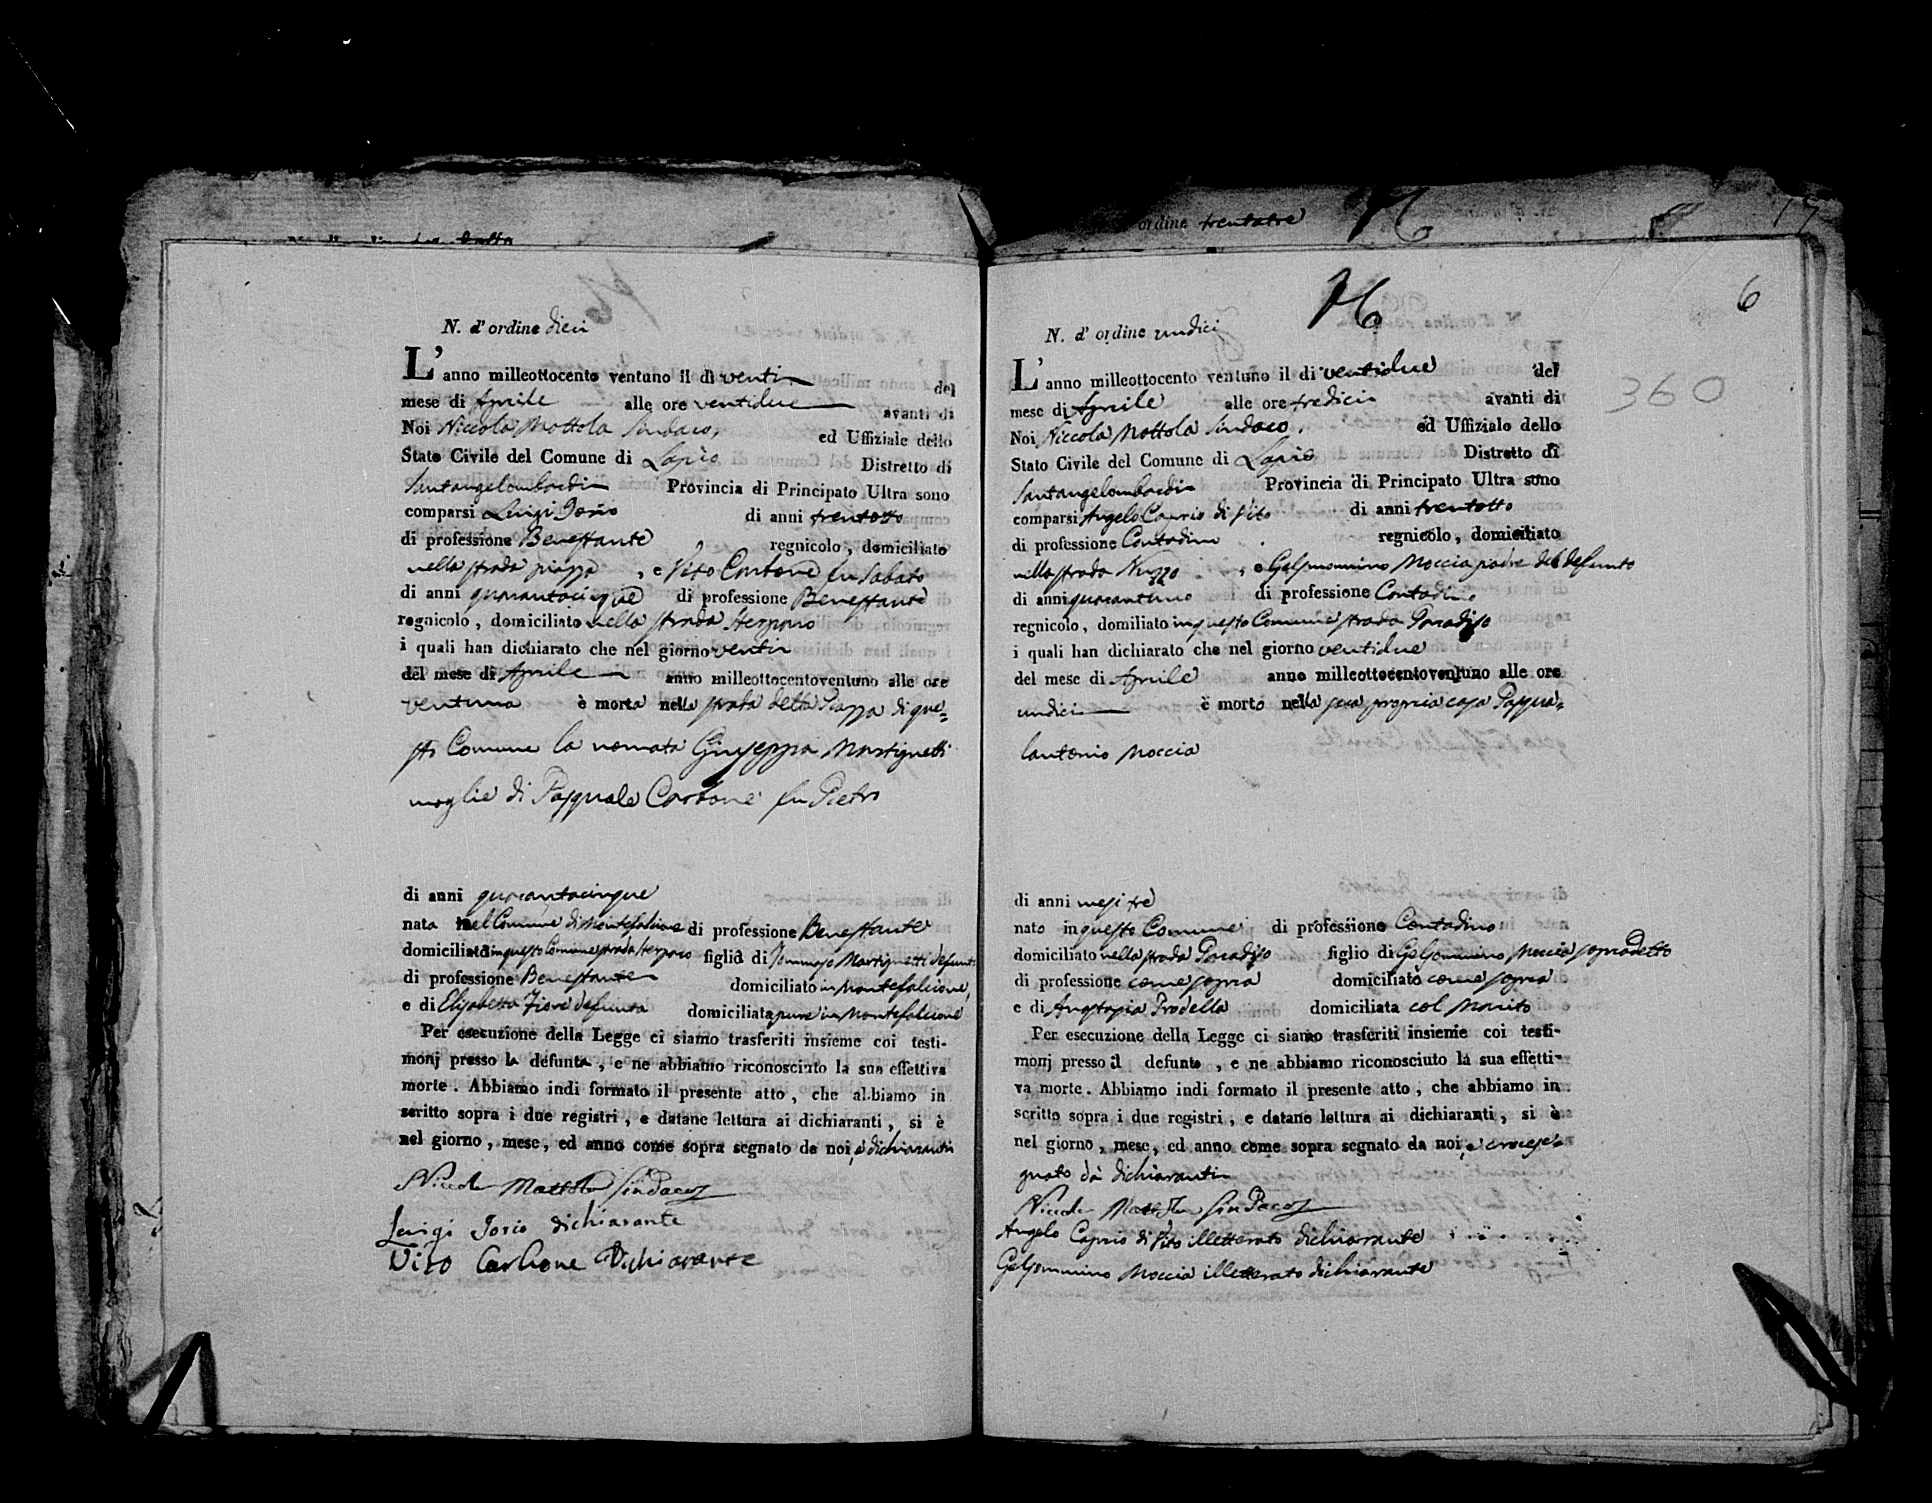 N. d' ordine dieci
L' anno milleottocento ventuno il di venti del
mese di Aprile alle ore ventidue avanti di
Noi Niccola Mottola Sindaco, ed Uffiziale dello
Stato Civile del Comune di Lapio Distretto di
Santangelombardi Provincia di Principato Ultra sono
comparsi Luigi Iorio di anni trentotto
di professione Benestante regnicolo, domiciliato
nella strada piazza, e Vito Carbone fu Sabato
di anni quarantacinque di professione Benestante
regnicolo, domiciliato nella strada
i quali han dichiarato che nel giorno venti
del mese di Aprile anno milleottocentoventuno alle ore
ventuna è morta nella strada della Piazza di que=
sto Comune la nomata Giuseppa Martignetti
moglie di Pasquale Carbone fu Pietro
di anni quarantacinque
nata nel Comune di Montefalcione di professione Benestante
domiciliata in questo Comune strada figlia di Tommaso Martignetti defunto
di professione Benestante domiciliato in Montefalcione,
e di Elisabetta Fiore defunta domiciliata pure in Montefalcione
Per esecuzione della Legge ci siamo trasferiti insieme coi testi-
monj presso la defunta, e ne abbiamo riconosciuto la sua effettiva
morte. Abbiamo indi formato il presente atto, che abbiamo in
scritto sopra i due registri, e datane lettura ai dichiaranti, si è
nel giorno, mese, ed anno come sopra segnato da noi, e dichiaranti
Niccola Mottola Sindaco
Luigi Iorio dichiarante
Vito Carbone Dichiarante
ordine trentatre
17
6
360
N. d' ordine undici
L' anno milleottocento ventuno il di ventidue del
mese di Aprile alle ore tredici avanti di
Noi Niccola Mottola Sindaco, ed Uffizialo dello
Stato Civile del Comune di Lapio Distretto di
Santangelombardi Provincia di Principato Ultra sono
comparsi Angelo Caprio di Vito di anni trentotto
di professione Contadino regnicolo, domiciliato
nella strada Nuzzo, e Gelsommino Moccia padre del defunto
di anni quarantuno di professione Contadino
regnicolo, domiliato in questo Comune strada Paradiso
i quali han dichiarato che nel giorno ventidue
del mese di Aprile anno milleottocentoventuno alle ore
undici è morto nella sua propria casa Pasqua=
lantonio Moccia
di anni mesi tre
nato in questo Comune di professione Contadino
domiciliato nella strada Paradiso figlio di Gelsommino Moccia sopradetto
di professione come sopra domiciliato come sopra
e di Angiola Prodella domiciliata col Marito
Per esecuzione della Legge ci siamo trasferiti insieme coi testi-
monj presso il defunto, e ne abbiamo riconosciuto la sua effetti-
va morte. Abbiamo indi formato il presente atto, che abbiamo in
scritto sopra i due registri, e datane lettura ai dichiaranti, si è
nel giorno, mese, ed anno come sopra segnato da noi, e crocese=
gnato da dichiaranti
Niccola Mottola Sindaco
Angelo Caprio di Vito illetterato dichiarante
Gelsommino Moccia illetterato dichiarante